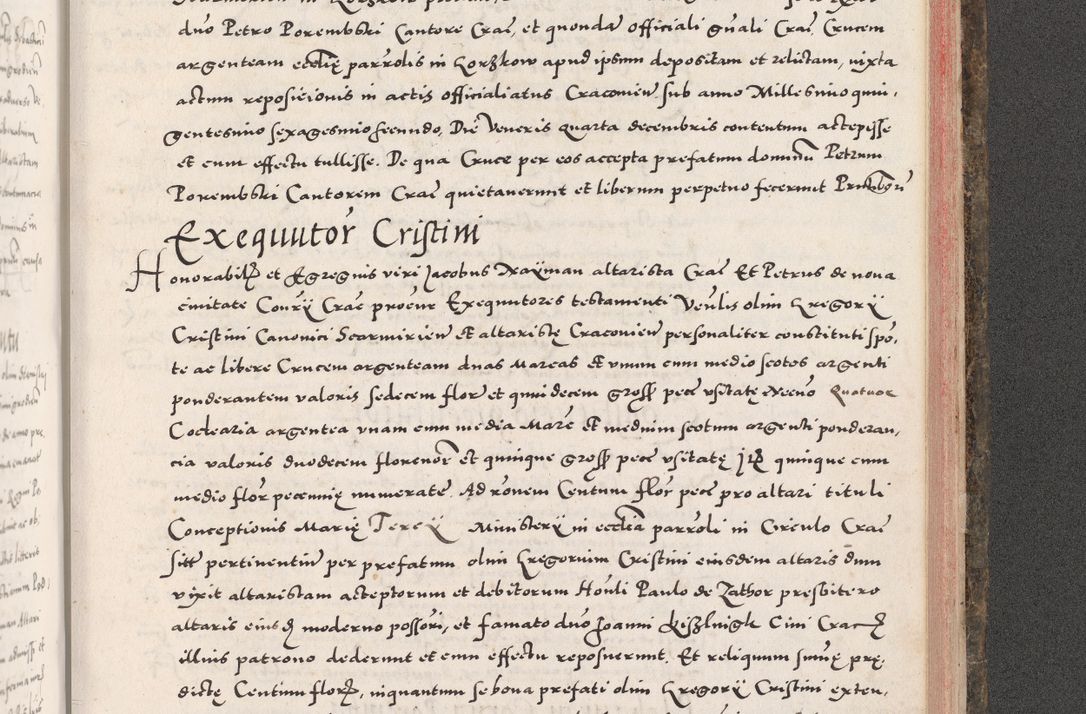 duo Petro Porembski Cantore Crac̄, et quonda officiali gn̄ali Crac̄ Crucem
argenteam ecclīę parrōlis in Gorzkow apud ipsum depositam et relictam, iuxta
actum reposicionis in actis officialiatus Cracovien̄ sub anno Millesimo quin,
gentesimo sexagesimo secundo, Die Veneris quarta decembris contentum accepisse
et cum effectu tullisse. De qua Cruce per eos accepta prefatum dominū Petrum
Porembski Cantorem Crac̄ quietaverunt et liberum perpetuo fecerunt
Exequutor̄ Cristini
Honorabil̄ et Egregius viri Jacobus altarista Crac̄ Et Petrus de nova
civitate Conr̄ij Crac̄ procur̄ Exequutores testamenti Ven̄lis olim Gregorij
Cristini Canonici Scarmirien̄ Et altaristę Cracovien̄ personaliter constituti spō,
te ac libere Crucem argenteam duas Marcas Et unum cum medio scotos argenti
ponderantem valoris sedecem flor̄ et quindecem gross̄ pecc̄ usitatę Necno Quatuor
Coclearia argentea unam cum media Marc̄ Et medium scotum argenti ponderan,
cia valoris duodecem florenor̄ et quinque gross̄ pecc̄ usitatę quinque cum
medio flor̄ pecunię numeratę. Ad rōnem Centum flor̄ pecc̄ pro altari tituli
Conceptionis Marię Tercij Ministerij in ecclīa parrōli in Circulo Crac̄
sitt̄ pertinentiu̅ per prefatum olim Gregorium Cristini eiusdem altaris dum
vixit altaristam acceptorum et debitorum Hon̄li Paulo de Zathor presbitero
altaris eiusd̄ moderno possōri, et famato duō Joanni Civi Crac̄
illius patrono dederunt et cum effectu reposuerunt. Et reliquum sumę prę,
dictę Centum flor̄, inquantum se bona prefati olim Gregorij Cristini exten,